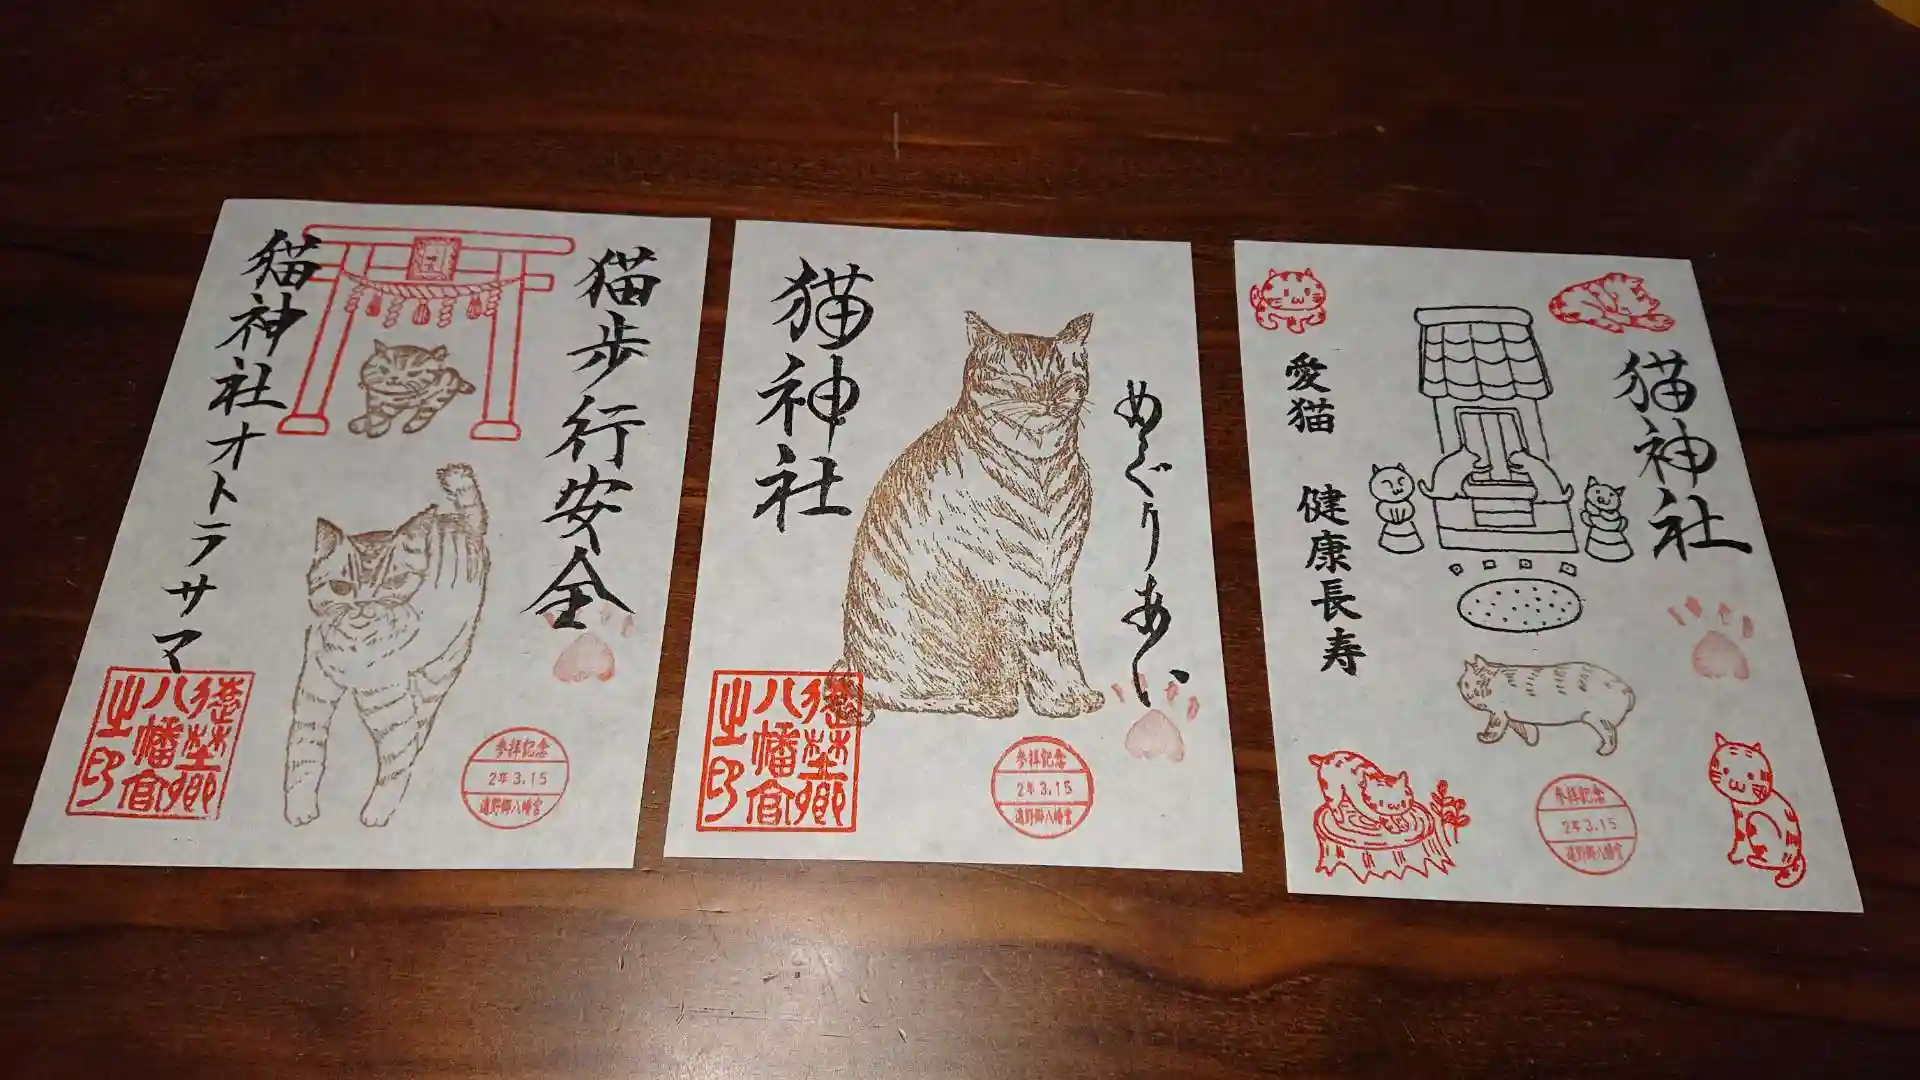 猫歩行安全
猫神社オトラサマ
遠野郷
八幡宮
之印
参拝記念
2年3.15
遠野郷八幡宮
めぐりあい
猫神社
遠野郷
八幡宮
之印
参拝記念
2年3.15
遠野郷八幡宮
猫神社
愛猫 健康長寿
参拝記念
2年3.15
遠野郷八幡宮